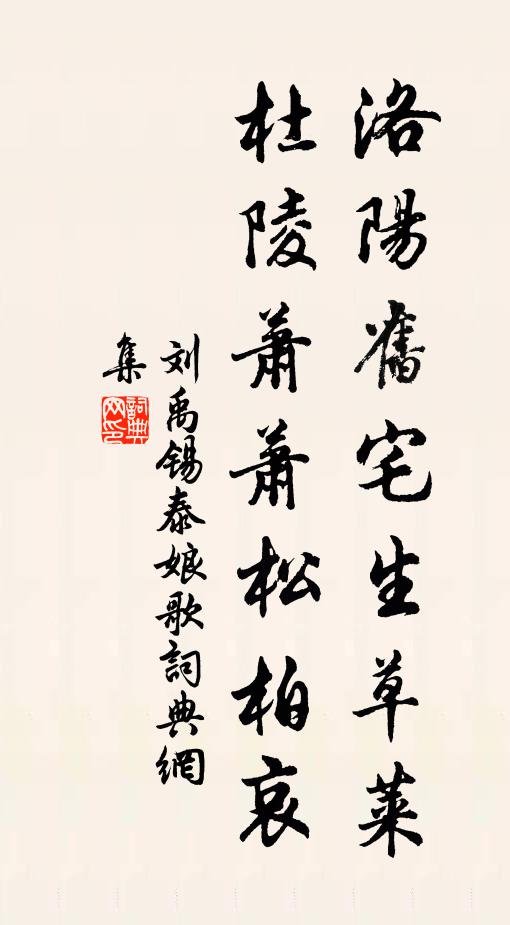 洛陽舊宅生草萊
杜陵蕭蕭松柏哀
刘禹錫泰娘歌詞典網
集
詞典網印